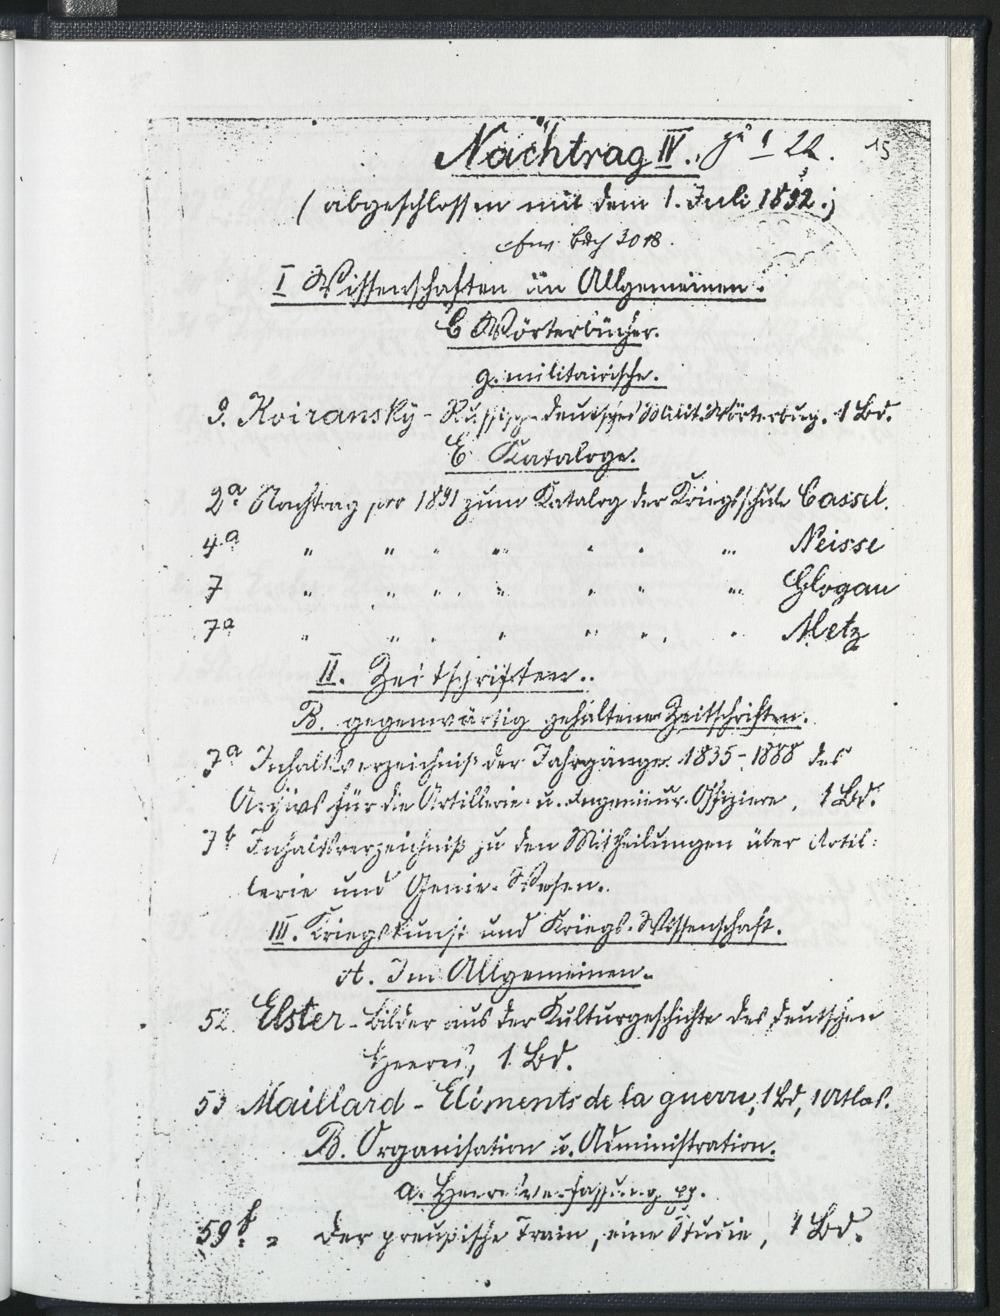 Nachtrag IV. zu 1 22. 15
(abgeschlossen mit dem 1. Juli 1892.)
3018.
I Wissenschaften im Allgemeinen.
C Wörterbücher.
g. militairische.
9. Koiransky - Russisch-deutsches Milit. Wörterbuch. 1 Bd.
E Kataloge.
2a Nachtrag pro 1891 zum Katalog der Kriegsschule Cassel.
4a " " " " " " " Neisse
7 " " " " " " " Glogau
7a " " " " " " " Metz
II. Zeitschriften.
B. gegenwärtig gehaltene Zeitschriften.
7a Inhaltsverzeichniß der Jahrgänge 1835-1888 des
Archivs für die Artillerie- u. Ingenieur-Offiziere, 1 Bd.
7b Inhaltsverzeichniß zu den Mittheilungen über Artil-
lerie und Genie-Wesen.
III. Kriegskunst und Kriegs-Wissenschaft.
A. Im Allgemeinen.
52. Elster - Bilder aus der Kulturgeschichte des deutschen
Heeres, 1 Bd.
53 Maillard - Eléments de la guerre, 1 Bd, 1 Atlas.
B. Organisation u. Administration.
a. Heeresverfassung pp.
59f. - Der preußische Train, eine Studie, 1 Bd.